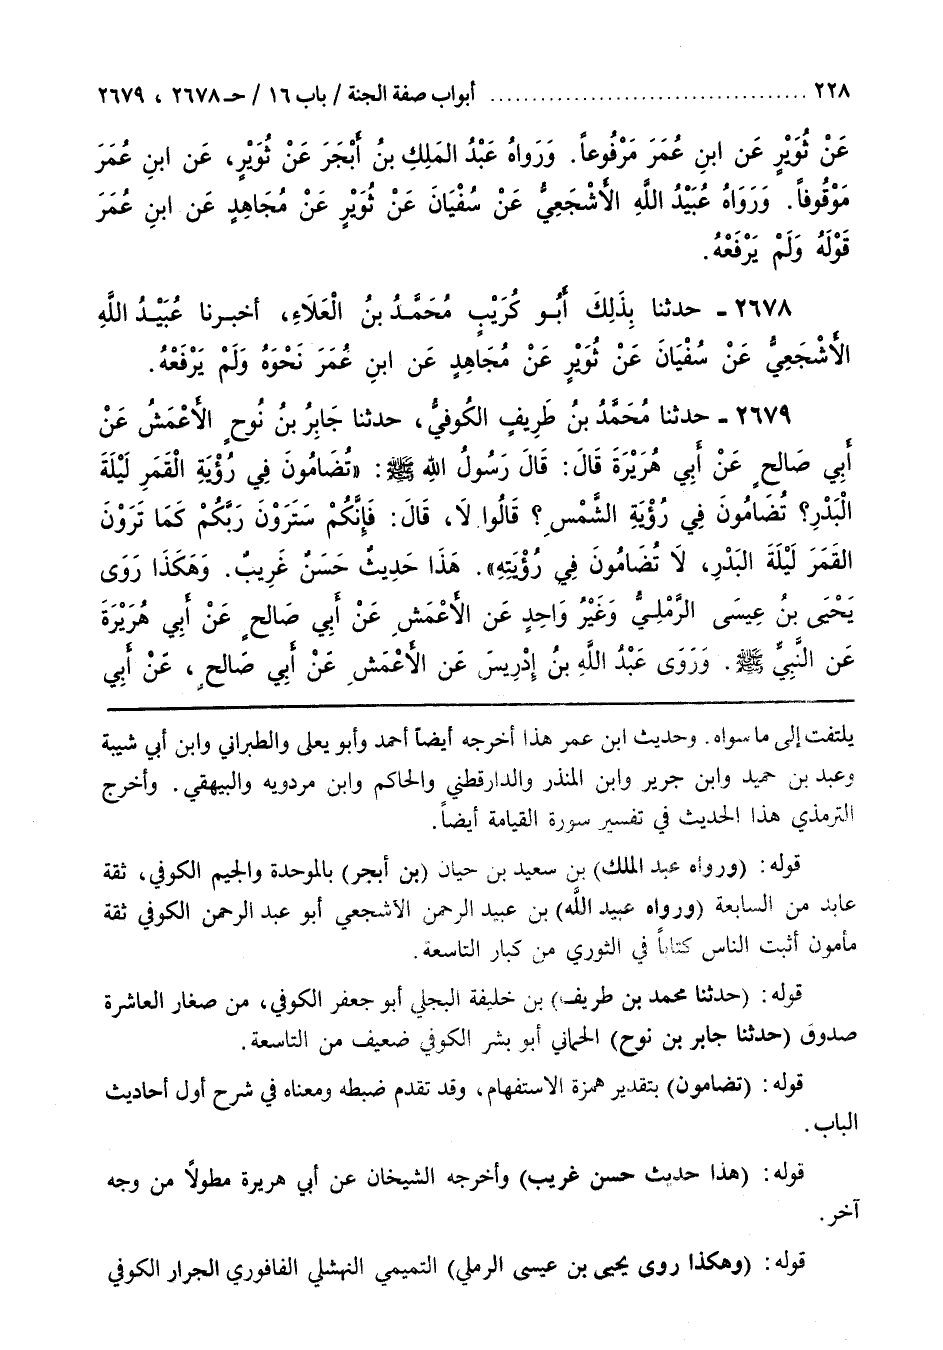 ٢٢٨ ..................................... أبواب صفة الجنة / باب ١٦ / حـ ٢٦٧٨ ، ٢٦٧٩
عَنْ ثُوَيْرٍ عَن ابنِ عُمَرَ مَرْفُوعاً. وَرَواهُ عَبْدُ المَلِكِ بنُ أَبْجَرَ عَنْ ثُوَيْرٍ، عَن ابنِ عُمَرَ
مَوْقُوفاً. وَرَوَاهُ عُبَيْدُ اللهِ الأَشْجَعِيُّ عَنْ سُفْيَانَ عَنْ ثُوَيْرٍ عَنْ مُجَاهِدٍ عَن ابنِ عُمَرَ
قَوْلَهُ وَلَمْ يَرْفَعْهُ.
٢٦٧٨ ـ حدثنا بِذَلِكَ أَبُو كُرَيْبٍ مُحَمَّدُ بنُ الْعَلَاءِ، أخبرنا عُبَيْدُ اللَّهِ
الأَشْجَعِيُّ عَنْ سُفْيَانَ عَنْ ثُوَيْرٍ عَنْ مُجَاهِدٍ عَن ابنِ عُمَرَ نَحْوَهُ وَلَمْ يَرْفَعْهُ.
٢٦٧٩ ـ حدثنا مُحَمَّدُ بنُ طَرِيفٍ الكُوفيُّ، حدثنا جَابِرُ بنُ نُوحٍ الأَعْمَشُ عَنْ
أَبِي صَالحٍ عَنْ أَبي هُرَيْرَةَ قَالَ: قَالَ رَسُولُ اللهِ ﷺ: «تُضَامُونَ فِي رُؤْيَةِ الْقَمَرِ لَيْلَةَ
الْبَدْرِ؟ تُضَامُونَ فِي رُؤْيَةِ الشَّمْسِ؟ قَالُوا لَا، قَالَ: فَإِنَّكُمْ سَتَرَوْنَ رَبَّكُمْ كَمَا تَرَوْنَ
القَمَرَ لَيْلَةَ البَدْرِ، لَا تُضَامُونَ فِي رُؤْيَتِهِ». هَذَا حَدِيثٌ حَسَنٌ غَرِيبٌ. وَهَكَذَا رَوَى
يَحْيَى بنُ عِيسَى الرَّمْلِيُّ وَغَيْرُ وَاحِدٍ عَن الأَعْمَشِ عَنْ أَبي صَالحٍ عَنْ أَبي هُرَيْرَةَ
عَن النَّبيِّ ﷺ. وَرَوَى عَبْدُ اللَّهِ بنُ إِدْرِيسَ عَن الأَعْمَشِ عَنْ أَبي صَالحٍ، عَنْ أَبي
يلتفت إلى ما سواه. وحديث ابن عمر هذا أخرجه أيضاً أحمد وأبو يعلى والطبراني وابن أبي شيبة
وعبد بن حميد وابن جرير وابن المنذر والدارقطني والحاكم وابن مردويه والبيهقي. وأخرج
الترمذي هذا الحديث في تفسير سورة القيامة أيضاً.
قوله: (ورواه عبد الملك) بن سعيد بن حيان (بن أبجر) بالموحدة والجيم الكوفي، ثقة
عابد من السابعة (ورواه عبيد اللَّه) بن عبيد الرحمن الأشجعي أبو عبد الرحمن الكوفي ثقة
مأمون أثبت الناس كتاباً في الثوري من كبار التاسعة.
قوله: (حدثنا محمد بن طريف) بن خليفة البجلي أبو جعفر الكوفي، من صغار العاشرة
صدوق (حدثنا جابر بن نوح) الحماني أبو بشر الكوفي ضعيف من التاسعة.
قوله: (تضامون) بتقدير همزة الاستفهام، وقد تقدم ضبطه ومعناه في شرح أول أحاديث
الباب.
قوله: (هذا حديث حسن غريب) وأخرجه الشيخان عن أبي هريرة مطولاً من وجه
آخر.
قوله: (وهكذا روى يحيى بن عيسى الرملي) التميمي النهشلي الفافوري الجرار الكوفي